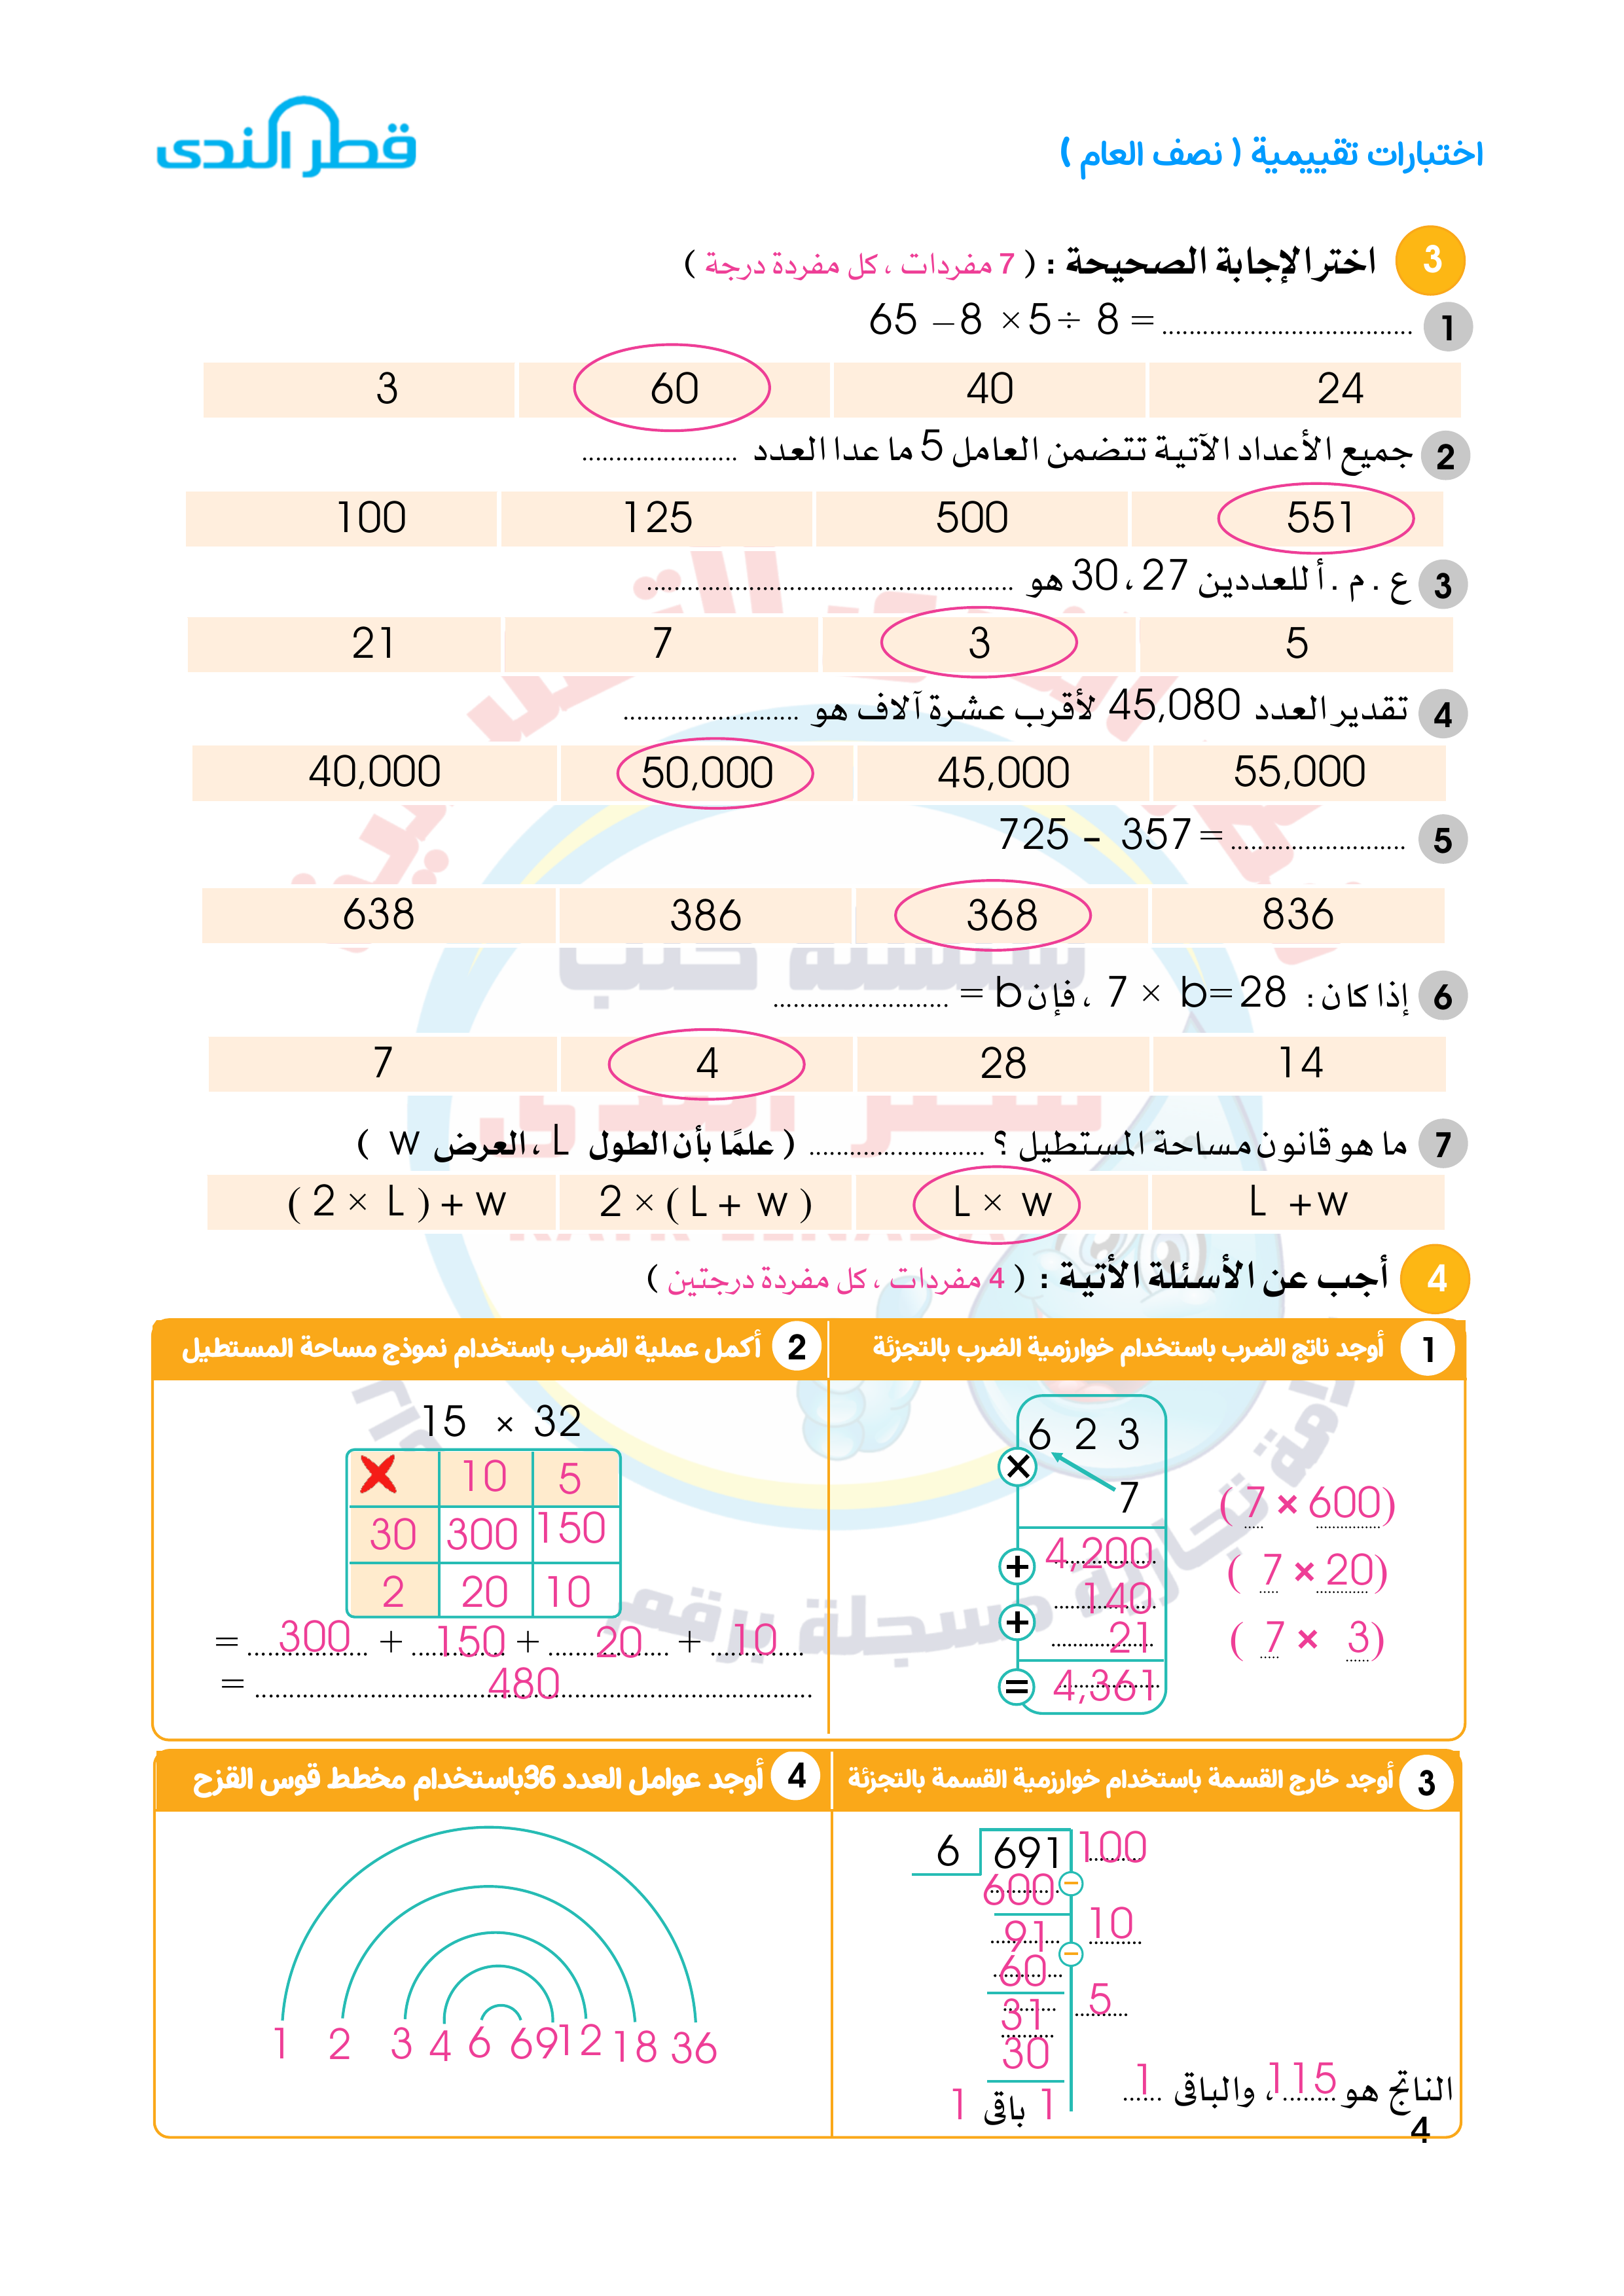 قطر الندى
اختبارات تقييمية ( نصف العام )
3 اختر الإجابة الصحيحة : ( 7 مفردات ، كل مفردة درجة )
1 65 – 8 × 5 ÷ 8 = ....................
3 60 40 24
2 جميع الأعداد الآتية تتضمن العامل 5 ما عدا العدد ....................
100 125 500 551
3 ع . م . أ للعددين 27 ، 30 هو ....................
21 7 3 5
4 تقدير العدد 45,080 لأقرب عشرة آلاف هو ....................
40,000 50,000 45,000 55,000
5 725 - 357 = ....................
638 386 368 836
6 إذا كان : 7 × b = 28 ، فإن b = ....................
7 4 28 14
7 ما هو قانون مساحة المستطيل ؟ .................... ( علمًا بأن الطول L ، العرض w )
( 2 × L ) + w 2 × ( L + w ) L × w L + w
4 أجب عن الأسئلة الأتية : ( 4 مفردات ، كل مفردة درجتين )
1 أوجد ناتج الضرب باستخدام خوارزمية الضرب بالتجزئة
6 2 3
× 7
+ 4,200 ( 7 × 600)
+ 140 ( 7 × 20)
21 ( 7 × 3)
= 4,361
2 أكمل عملية الضرب باستخدام نموذج مساحة المستطيل
15 × 32
× 10 5
30 300 150
2 20 10
= 300 + 150 + 20 + 10
= 480
3 أوجد خارج القسمة باستخدام خوارزمية القسمة بالتجزئة
6 691 100
600 –
91 10
60 –
31 5
30
1 باقى 1
الناتج هو 115 ، والباقى 1
4 أوجد عوامل العدد 36باستخدام مخطط قوس القزح
1 2 3 4 6 6 9 12 18 36
4